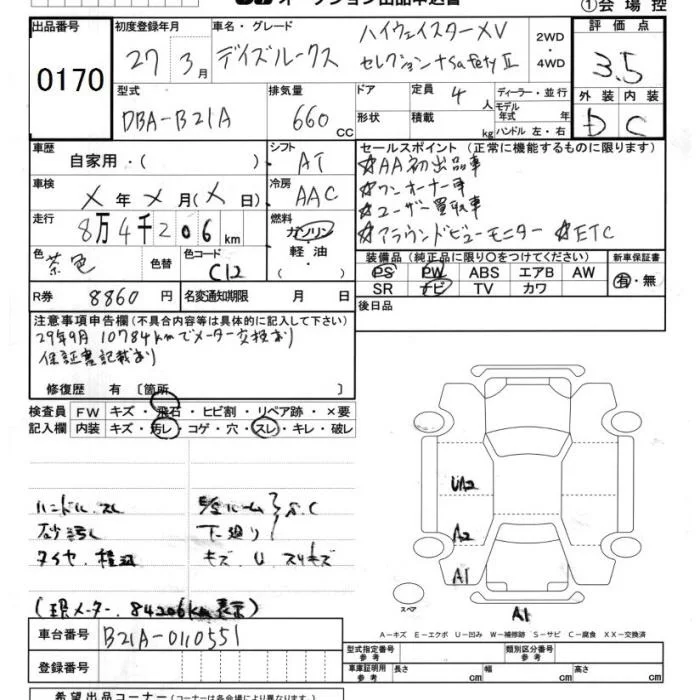 オークション出品申込書
①会場控
出品番号 初度登録年月 車名・グレード 評価点
0170 27 3月 デイズルークス ハイウェイスターXV 2WD
セレクション+SafetyⅡ ・4WD 3.5
型式 排気量 ドア 定員 4人 ディーラー・並行 外装 内装
DBA-B21A 660 CC 形状 積載 kg モデル年式 年 D C
ハンドル 左・右
車歴 自家用・( ) シフト AT セールスポイント (正常に機能するものに限ります)
☆AA初出品車
車検 メ年メ月(メ日) 冷房 AAC ☆ワンオーナー車
☆ユーザー買取車
走行 8万4千206km 燃料 ガソリン ☆アラウンドビューモニター ☆ETC
軽油・
色 茶色 色替 色コード C12 装備品 (純正品に限り○をつけてください) 新車保証書
PS PW ABS エアB AW 有・無
SR ナビ TV カワ
R券 8860円 名変通知期限 月 日 後日品
注意事項申告欄 (不具合内容等は具体的に記入して下さい)
29年9月 10784kmでメーター交換あり
保証書記載あり
修復歴 有 〔箇所 〕
検査員 FW キズ・飛石・ヒビ割・リペア跡・×要
記入欄 内装 キズ・汚レ・コゲ・穴・スレ・キレ・破レ
ハンドル スレ ルーム S.C
砂汚レ 下廻リ
タイヤ キズ U スリキズ
UA2
A2
A1
スペア
A1
(現メーター 84206km表示)
A-キズ E-エクボ U-凹み W-補修跡 S-サビ C-腐食 XX-交換済
車台番号 B21A-0110551
型式指定番号 参考 類別区分番号 参考
登録番号 車庫証明用 参考 長さ cm 幅 cm 高さ cm
希望出品コーナー (コーナーは各会場により異なります)